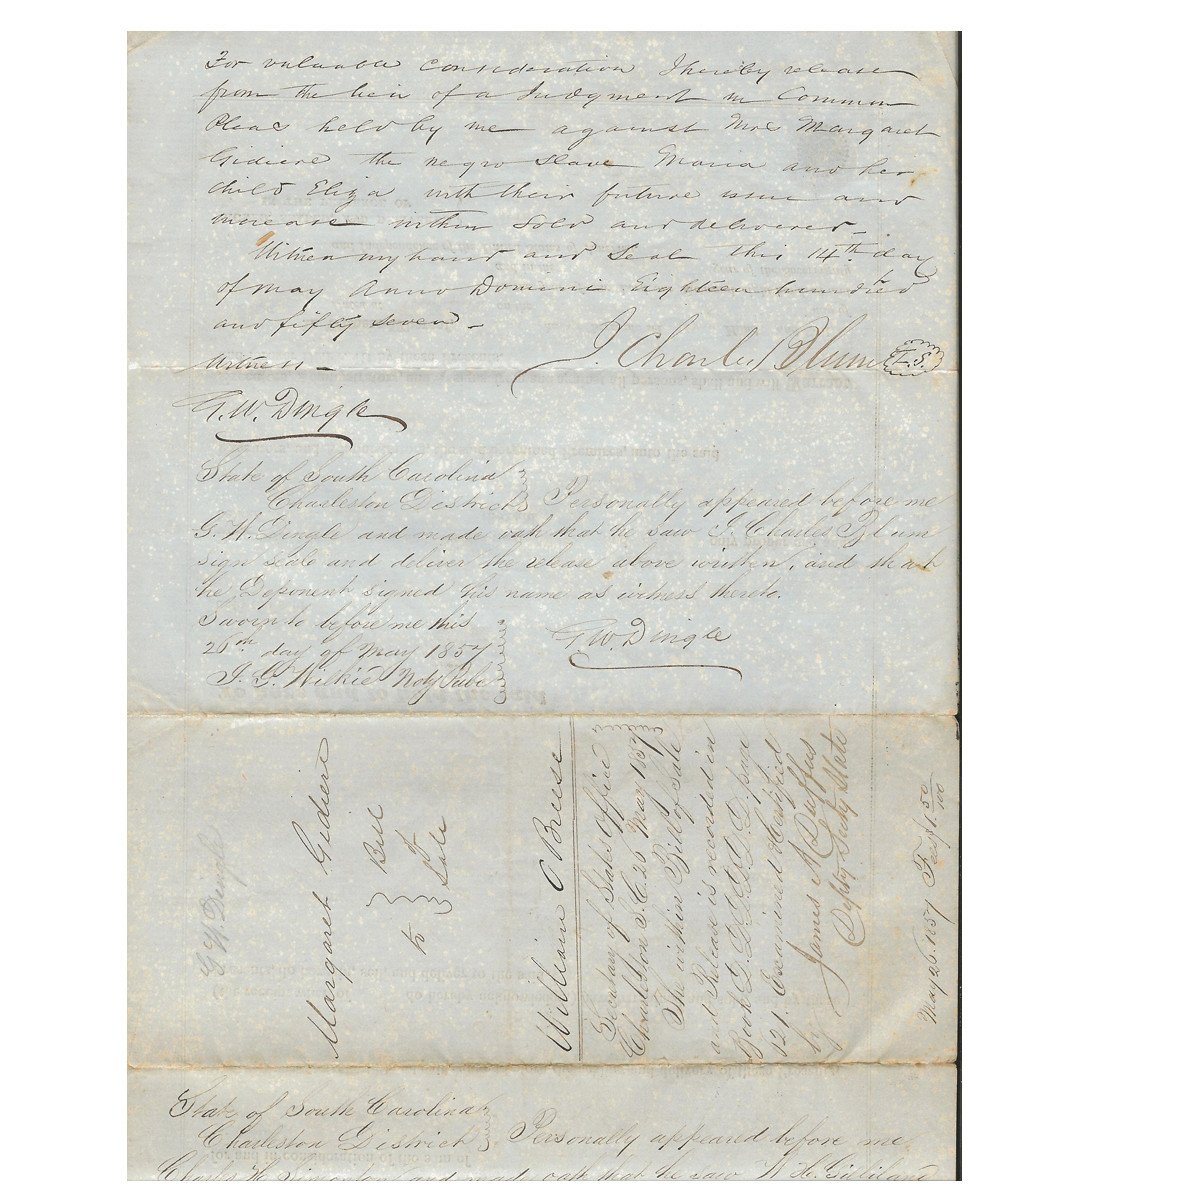 For valuable consideration I hereby release
from the lien of a Judgment in Common
Pleas held by me against Mrs Margaret
Gidiere the negro slave Maria and her
child Eliza with their future issue and
increase within sold and delivered –
Witness my hand and Seal this 14th day
of May Anno Domini Eighteen hundred
and fifty seven –
Witness –
J. Charles Blum L.S.
G. W. Dingle
State of South Carolina
Charleston District Personally appeared before me
G. W. Dingle and made oath that he saw J. Charles Blum
sign seal and deliver the release above written, and that
he Deponent signed his name as witness thereto.
Sworn to before me this
26th day of May 1857
G. W. Dingle
J. G. Wilkie Noty Pub
G W Dingle
Margaret Gidiere
to
Bill
of
Sale
William C Breese
Secretary of States Office
Charleston S.C. 26 May 1857
The within Bill of Sale
and Release is recorded in
Book D.D.D.D.D.D. page
121. Examined & Certified
by James M Duffus
Depty Secty State
May 26. 1857 Fees $1.50/100
State of South Carolina
Charleston District Personally appeared before me
Charles H. Simonton and made oath that he saw W H. Gilliland